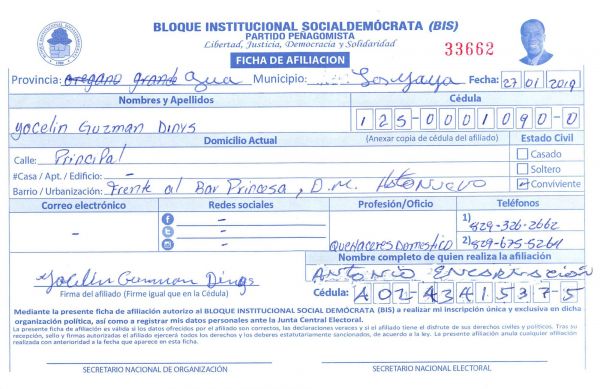 BLOQUE INSTITUCIONAL SOCIALDEMÓCRATA (BIS)
PARTIDO PEÑAGOMISTA
Libertad, Justicia, Democracia y Solidaridad
33662
FICHA DE AFILIACION
Provincia: oregano grande Azua Municipio: Los Yaya Fecha: 27 01 2019
Nombres y Apellidos Cédula
Yocelin Guzman Dinys 125-0001090-0
Domicilio Actual (Anexar copia de cédula del afiliado) Estado Civil
Calle: Principal Casado
#Casa / Apt. / Edificio: - Soltero
Barrio / Urbanización: Frente al Bar Princesa, D.M. Hato Nuevo Conviviente
Correo electrónico Redes sociales Profesión/Oficio Teléfonos
- - Quehaceres Domestico 1) 829-326-2662
- 2) 829-675-5264
-
Nombre completo de quien realiza la afiliación
Yocelin Guzman Dinys Antonio Encarnación
Firma del afiliado (Firme igual que en la Cédula) Cédula: 402-4341537-5
Mediante la presente ficha de afiliación autorizo al BLOQUE INSTITUCIONAL SOCIAL DEMÓCRATA (BIS) a realizar mi inscripción única y exclusiva en dicha
organización política, así como a registrar mis datos personales ante la Junta Central Electoral.
La presente ficha de afiliación es válida si los datos ofrecidos por el afiliado son correctos, las declaraciones veraces y si el afiliado tiene el disfrute de sus derechos civiles y políticos. Tras su
recepción, sello y firmas autorizadas el afiliado ejercerá todos los derechos y los deberes estatutariamente sancionados, de acuerdo a la ley. La presente afiliación anula cualquier afiliación
realizada con anterioridad a la fecha que aparece en esta ficha.
SECRETARIO NACIONAL DE ORGANIZACIÓN SECRETARIO NACIONAL ELECTORAL